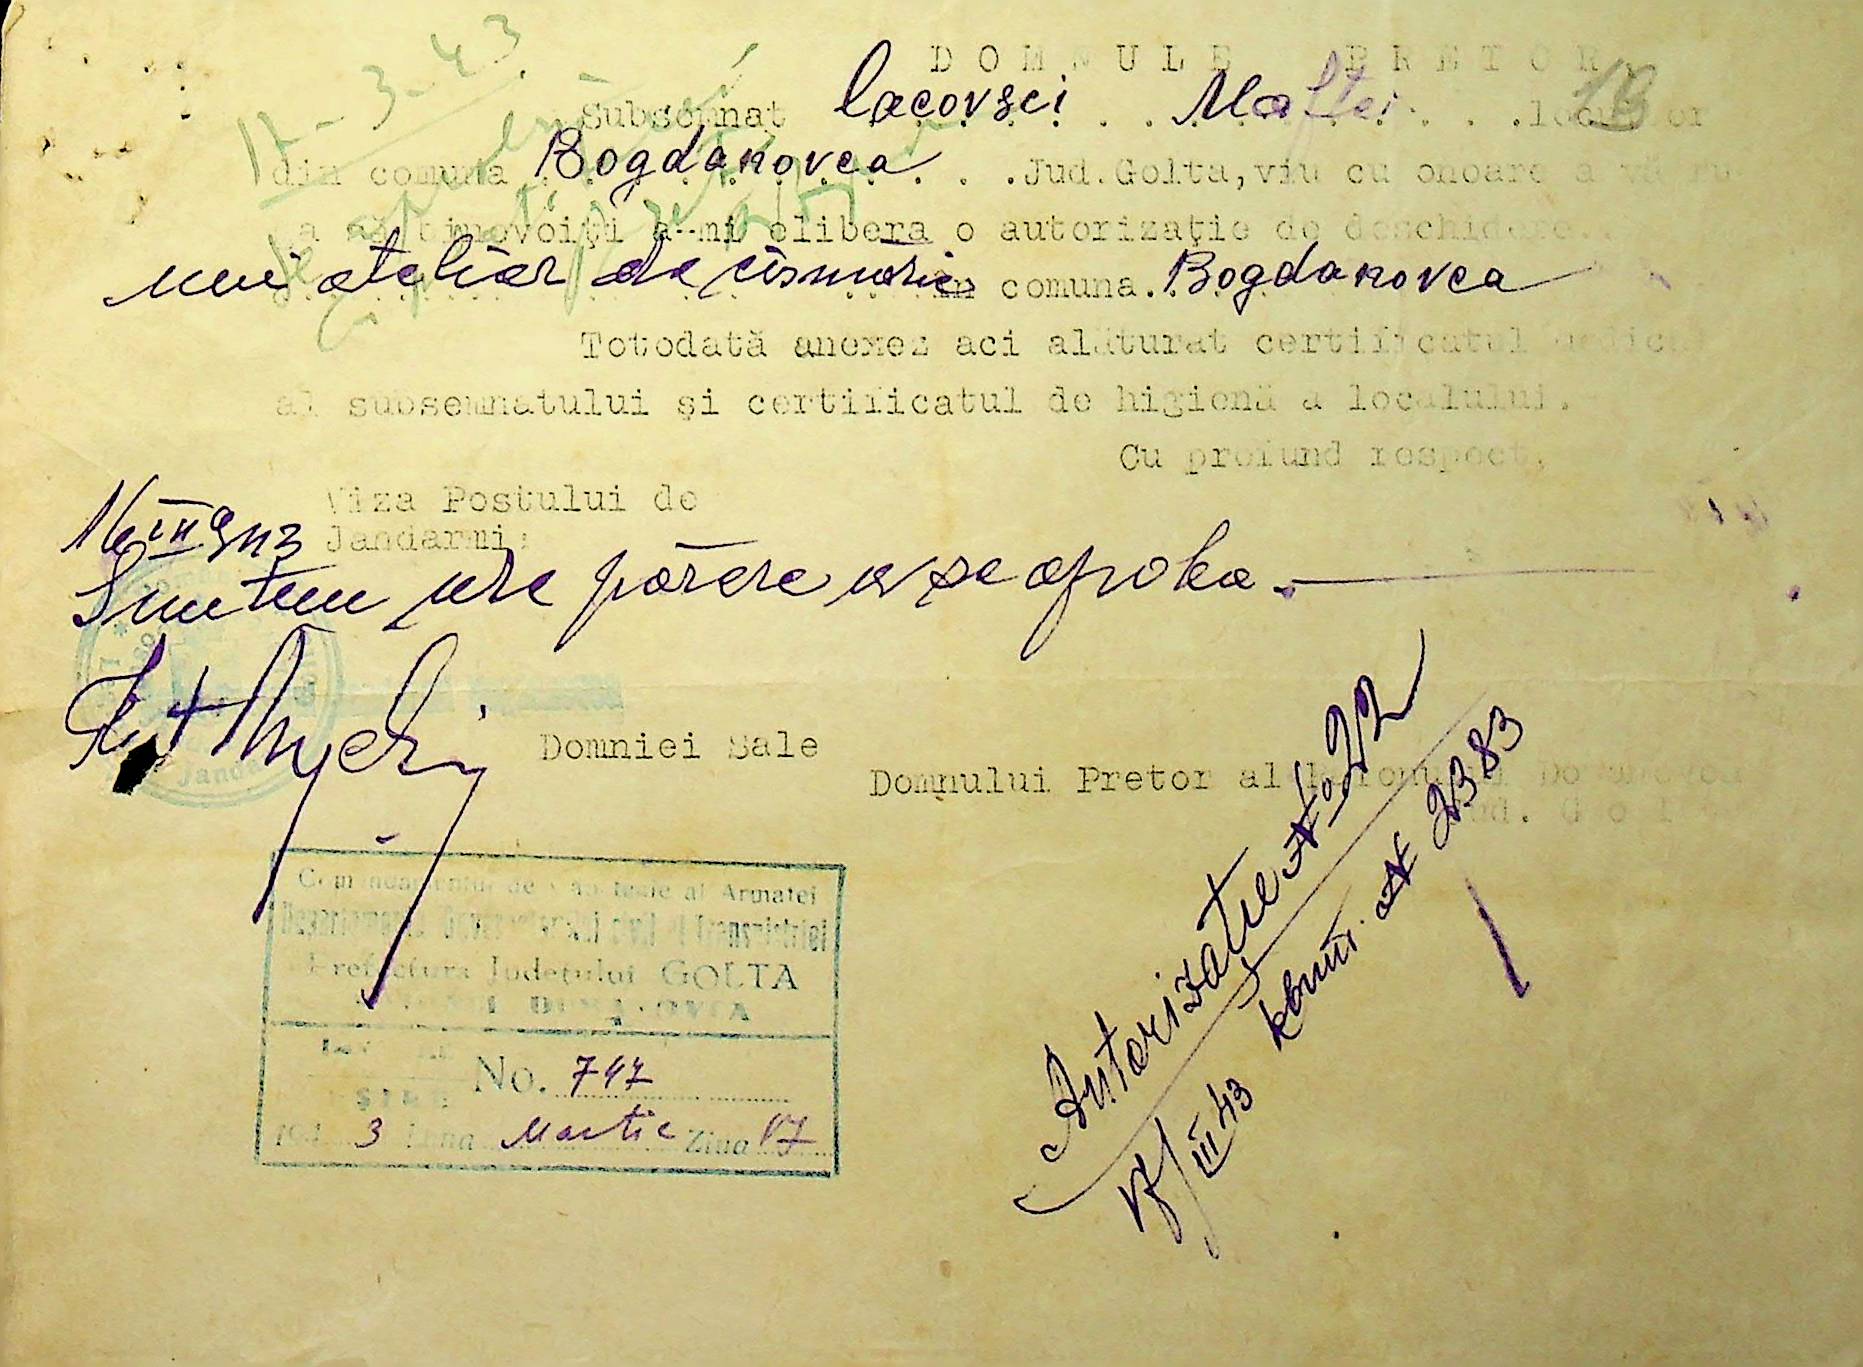 DOMNULE PRETOR
19
17-3-43
Subsemnat Iacovsci Maftei locuitor
din comuna Bogdanovca Jud.Golta, viu cu onoare a vă ru
a să binevoiţi a-mi elibera o autorizaţie de deschidere
unui atelier de cismarie în comuna. Bogdanovca
Totodată anexez aci alăturat certificatul medical
al subsemnatului şi certificatul de higienă a localului.
Cu profund respect,
Viza Postului de
Jandarmi:
16 III 943
Suntem de părere a se aproba.
Domniei Sale
Domnului Pretor al Raionului
Jud. Gol
Autorizatie No 22
No 2383
17/III 43
Armatei
Guvernamantului civil al Transnistriei
Prefectura Judeţului GOLTA
No. 747
194 3 Luna Martie Ziua 17